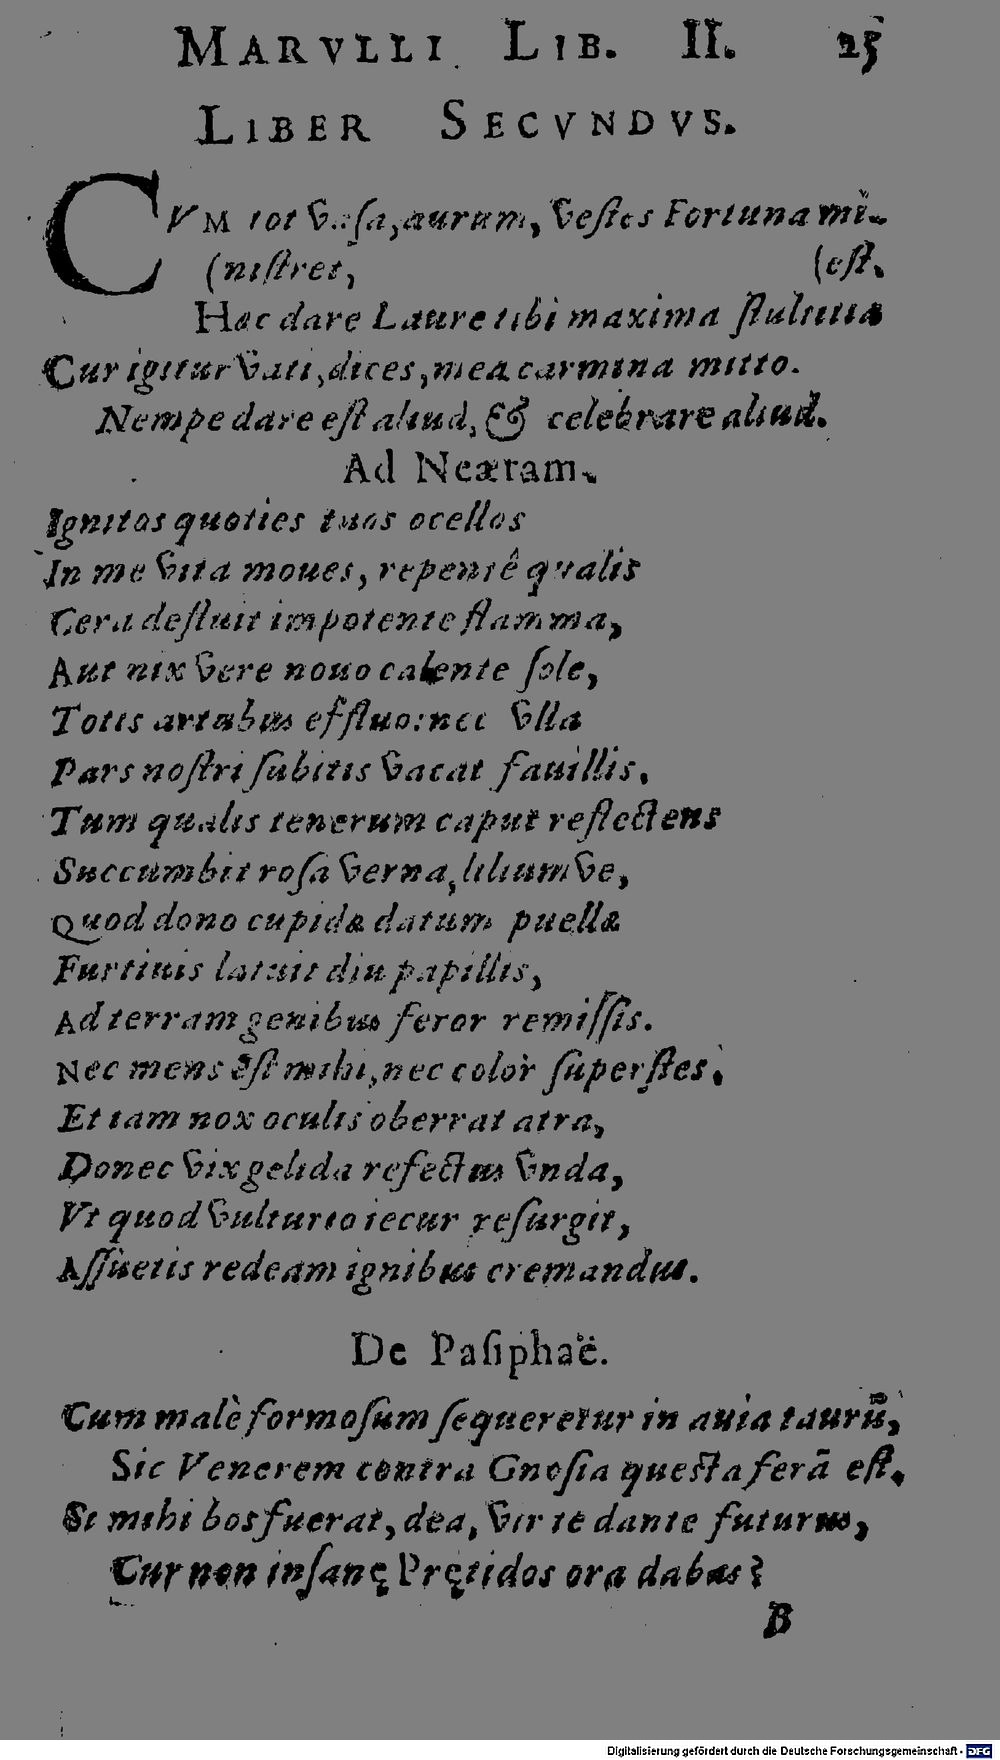 MARVLLI LIB. II. 25
LIBER SECVNDVS.
CVM tot vasa, aurum, vestes Fortuna mi-
(nistret, (est.
Hæc dare Laure tibi maxima stultitia
Cur igitur vati, dices, mea carmina mitto.
Nempe dare est aliud, & celebrare aliud.
Ad Neæram.
Ignitos quoties tuos ocellos
In me vita moues, repentê qualis
Cera defluit impotente flamma,
Aut nix vere nouo calente sole,
Totis artubus effluo: nec vlla
Pars nostri subitis vacat fauillis.
Tum qualis tenerum caput reflectens
Succumbit rosa verna, liliumve,
Quod dono cupidæ datum puellæ
Furtiuis latuit diu papillis,
Ad terram genibus feror remissis.
Nec mens est mihi, nec color superstes.
Et iam nox oculis oberrat atra,
Donec vix gelida refectus vnda,
Vt quod vulturio iecur resurgit,
Assuetis redeam ignibus cremandus.
De Pasiphaë.
Cum malè formosum sequeretur in auia taurũ,
Sic Venerem contra Gnosia questa ferã est.
Si mihi bos fuerat, dea, vir te dante futurus,
Cur non insanę Prętidos ora dabas?
B
Digitalisierung gefördert durch die Deutsche Forschungsgemeinschaft - DFG